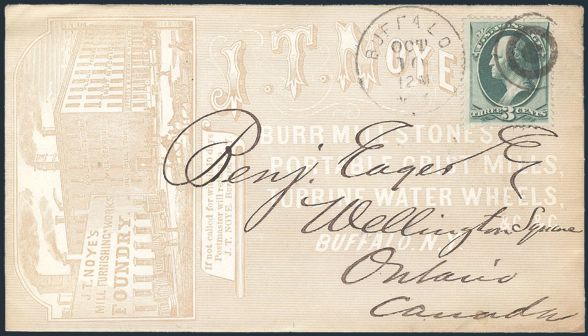 J. T. NOYE
BUFFALO
OCT
10
12 M
THREE 3 CENTS
BURR MILL STONES
PORTABLE GRIST MILLS
TURBINE WATER WHEELS
BUFFALO, N.Y.
J. T. NOYE'S
MILL FURNISHING WORKS
FOUNDRY
If not called for within 10 days
Postmaster will
J. T. NOYE
Benj. Eager Esq
Wellington Square
Ontario
Canada